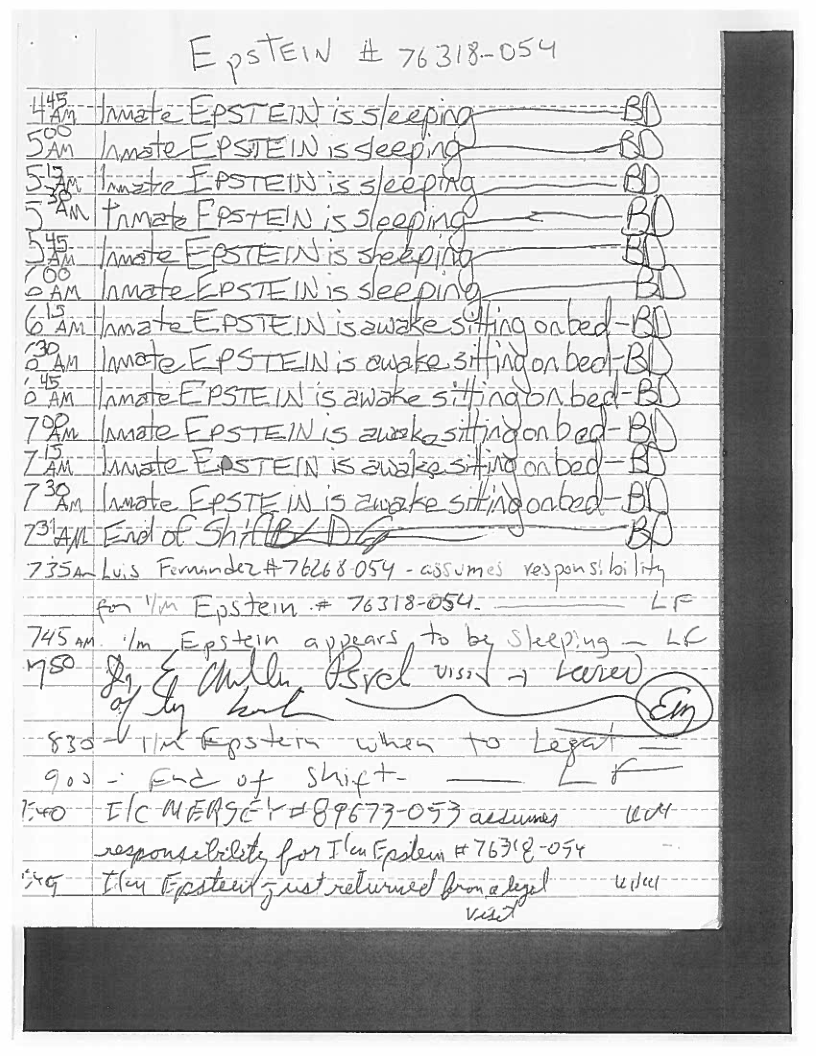 EpSTEIN # 76318-054
445 AM Inmate EPSTEIN is sleeping BD
500 AM Inmate EPSTEIN is sleeping BD
515 AM Inmate EPSTEIN is sleeping BD
530 AM Inmate EPSTEIN is sleeping BD
545 AM Inmate EPSTEIN is sleeping BD
600 AM Inmate EPSTEIN is sleeping BD
615 AM Inmate EPSTEIN is awake sitting on bed - BD
630 AM Inmate EPSTEIN is awake sitting on bed - BD
645 AM Inmate EPSTEIN is awake sitting on bed - BD
700 AM Inmate EPSTEIN is awake sitting on bed - BD
715 AM Inmate EPSTEIN is awake sitting on bed - BD
730 AM Inmate EPSTEIN is awake sitting on bed - BD
731 AM End of Shift BD
735 AM Luis Fernandez # 76268-054 - assumes responsibility
for I/m Epstein # 76318-054. LF
745 AM. I/m Epstein appears to be sleeping - LF
750 Dr E Psych visit →
of Em
830 - I/m Epstein when to Legal
900 - End of shift - LF
:40 I/C MERSEY # 89673-053 assumes
responsibility for I/m Epstein # 76318-054
:45 I/m Epstein just returned from a legal
visit